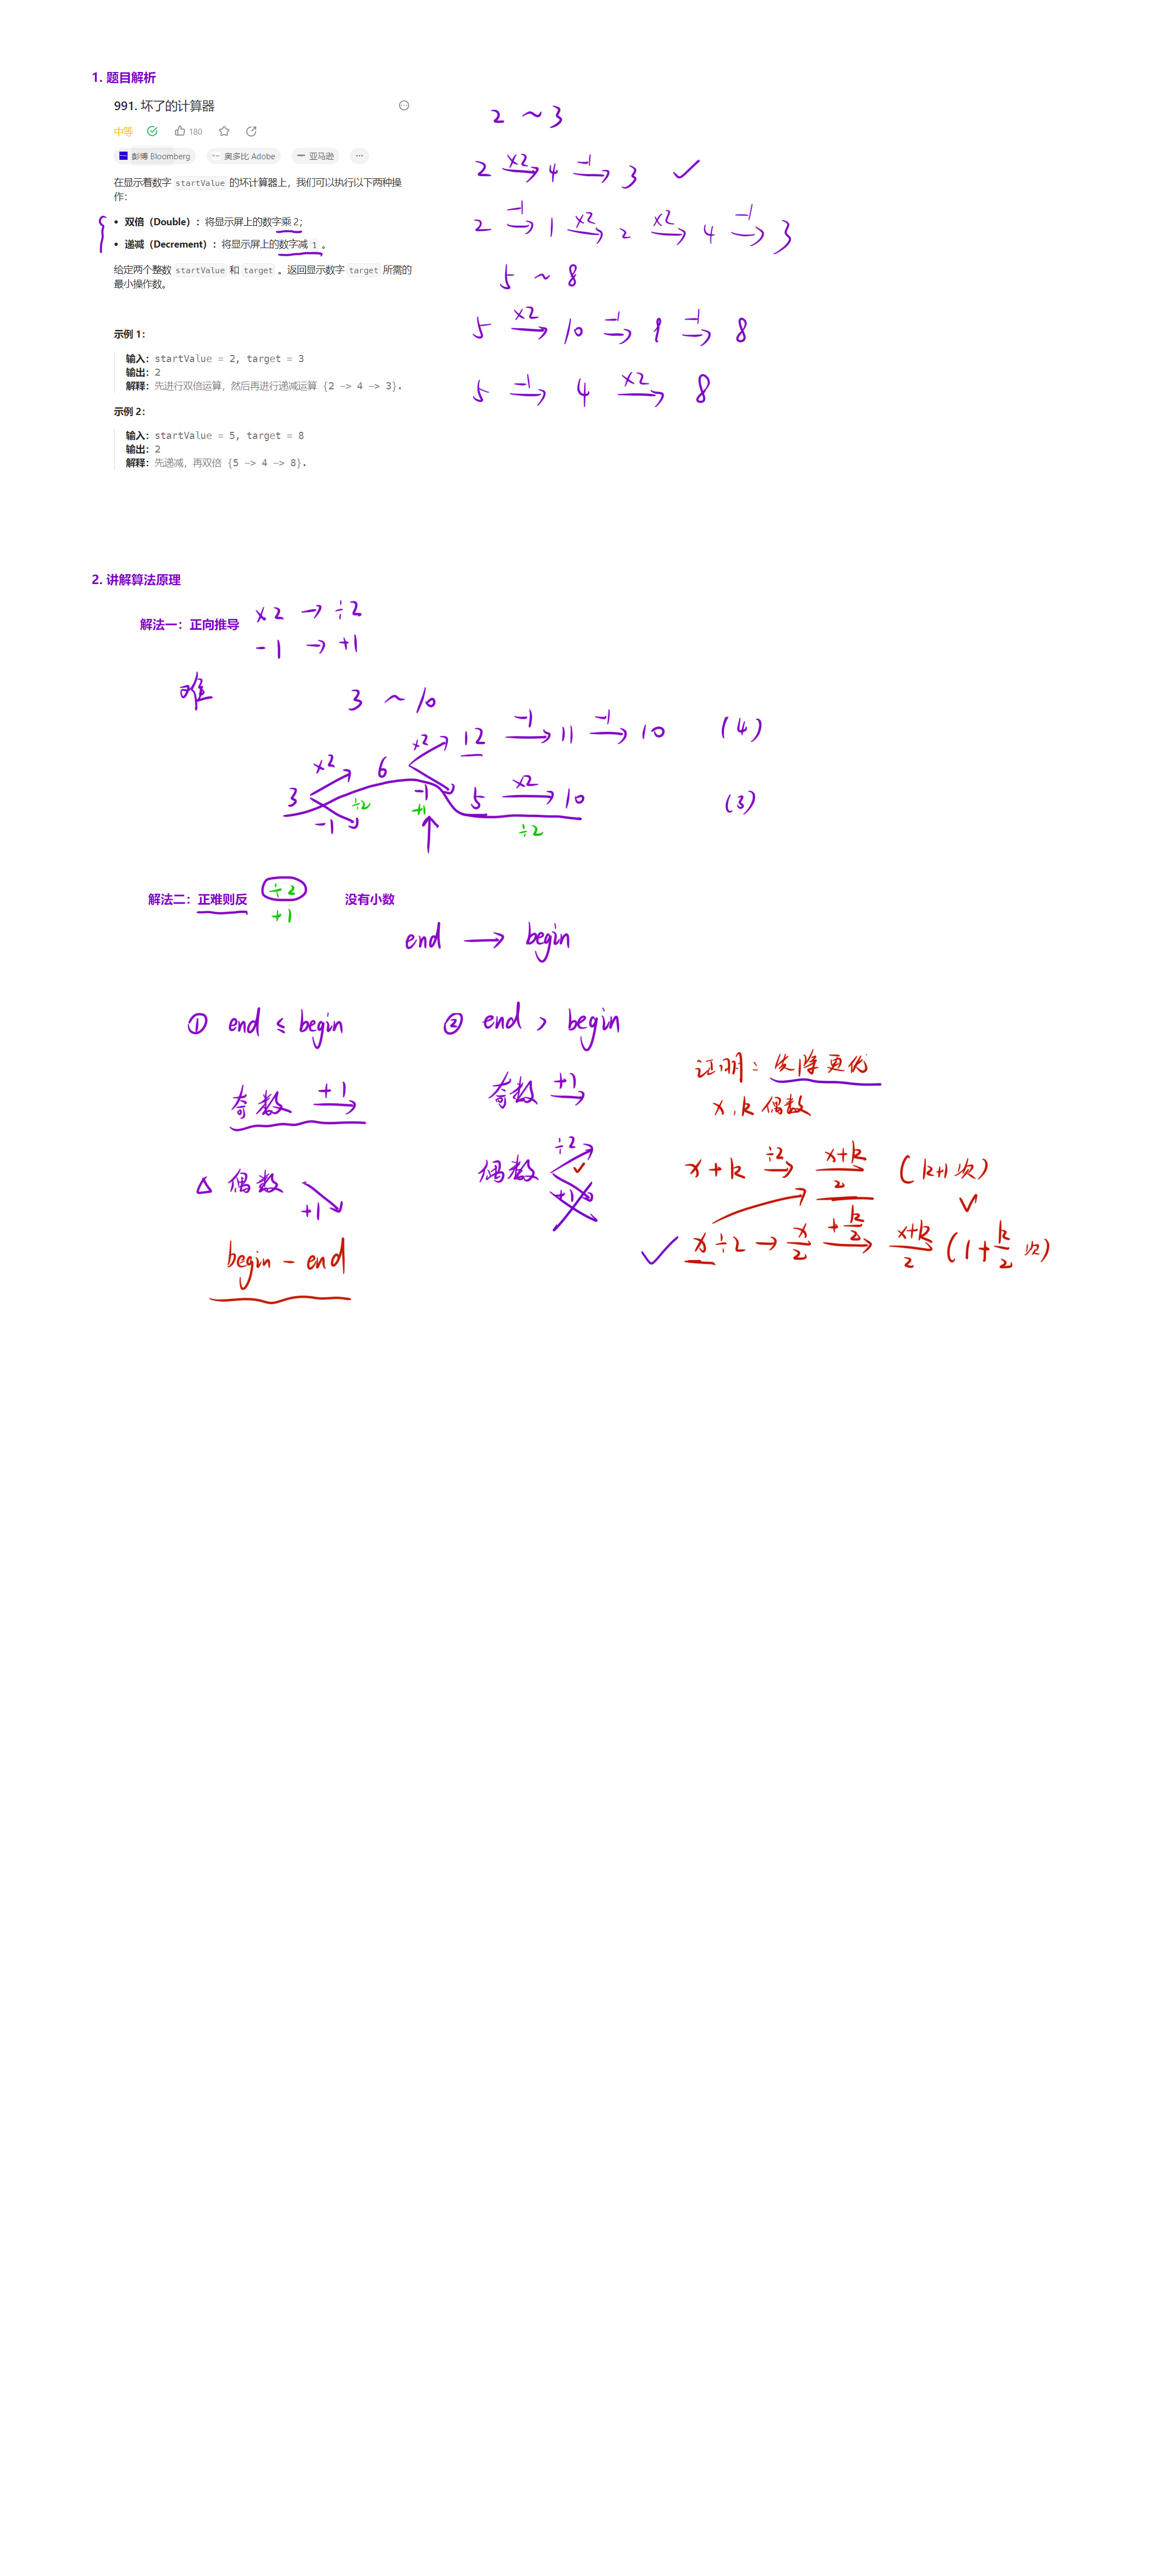 1. 题目解析
991. 坏了的计算器
中等 180
彭博 Bloomberg 奥多比 Adobe 亚马逊 ...
在显示着数字 startValue 的坏计算器上，我们可以执行以下两种操
作：
• 双倍（Double）：将显示屏上的数字乘 2；
• 递减（Decrement）：将显示屏上的数字减 1 。
给定两个整数 startValue 和 target 。返回显示数字 target 所需的
最小操作数。
示例 1：
输入：startValue = 2, target = 3
输出：2
解释：先进行双倍运算，然后再进行递减运算 {2 -> 4 -> 3}.
示例 2：
输入：startValue = 5, target = 8
输出：2
解释：先递减，再双倍 {5 -> 4 -> 8}.
2 ~ 3
2 ×2→ 4 -1→ 3 ✓
2 -1→ 1 ×2→ 2 ×2→ 4 -1→ 3
5 ~ 8
5 ×2→ 10 -1→ 9 -1→ 8
5 -1→ 4 ×2→ 8
2. 讲解算法原理
解法一：正向推导
×2 → ÷2
-1 → +1
难
3 ~ 10
×2 12 -1→ 11 -1→ 10 (4)
3 ×2 6
-1 5 ×2→ 10 (3)
-1 ÷2 +1 ÷2
解法二：正难则反 ÷2 没有小数
+1
end → begin
① end ≤ begin
奇数 +1→
△ 偶数
+1
begin - end
② end > begin
奇数 +1→
偶数 ÷2 ✓
+1
证明：先除更优
x, k 偶数
x+k ÷2→ x+k/2 (k+1次)
✓
✓ x÷2 → x/2 +k/2→ x+k/2 (1+k/2 次)